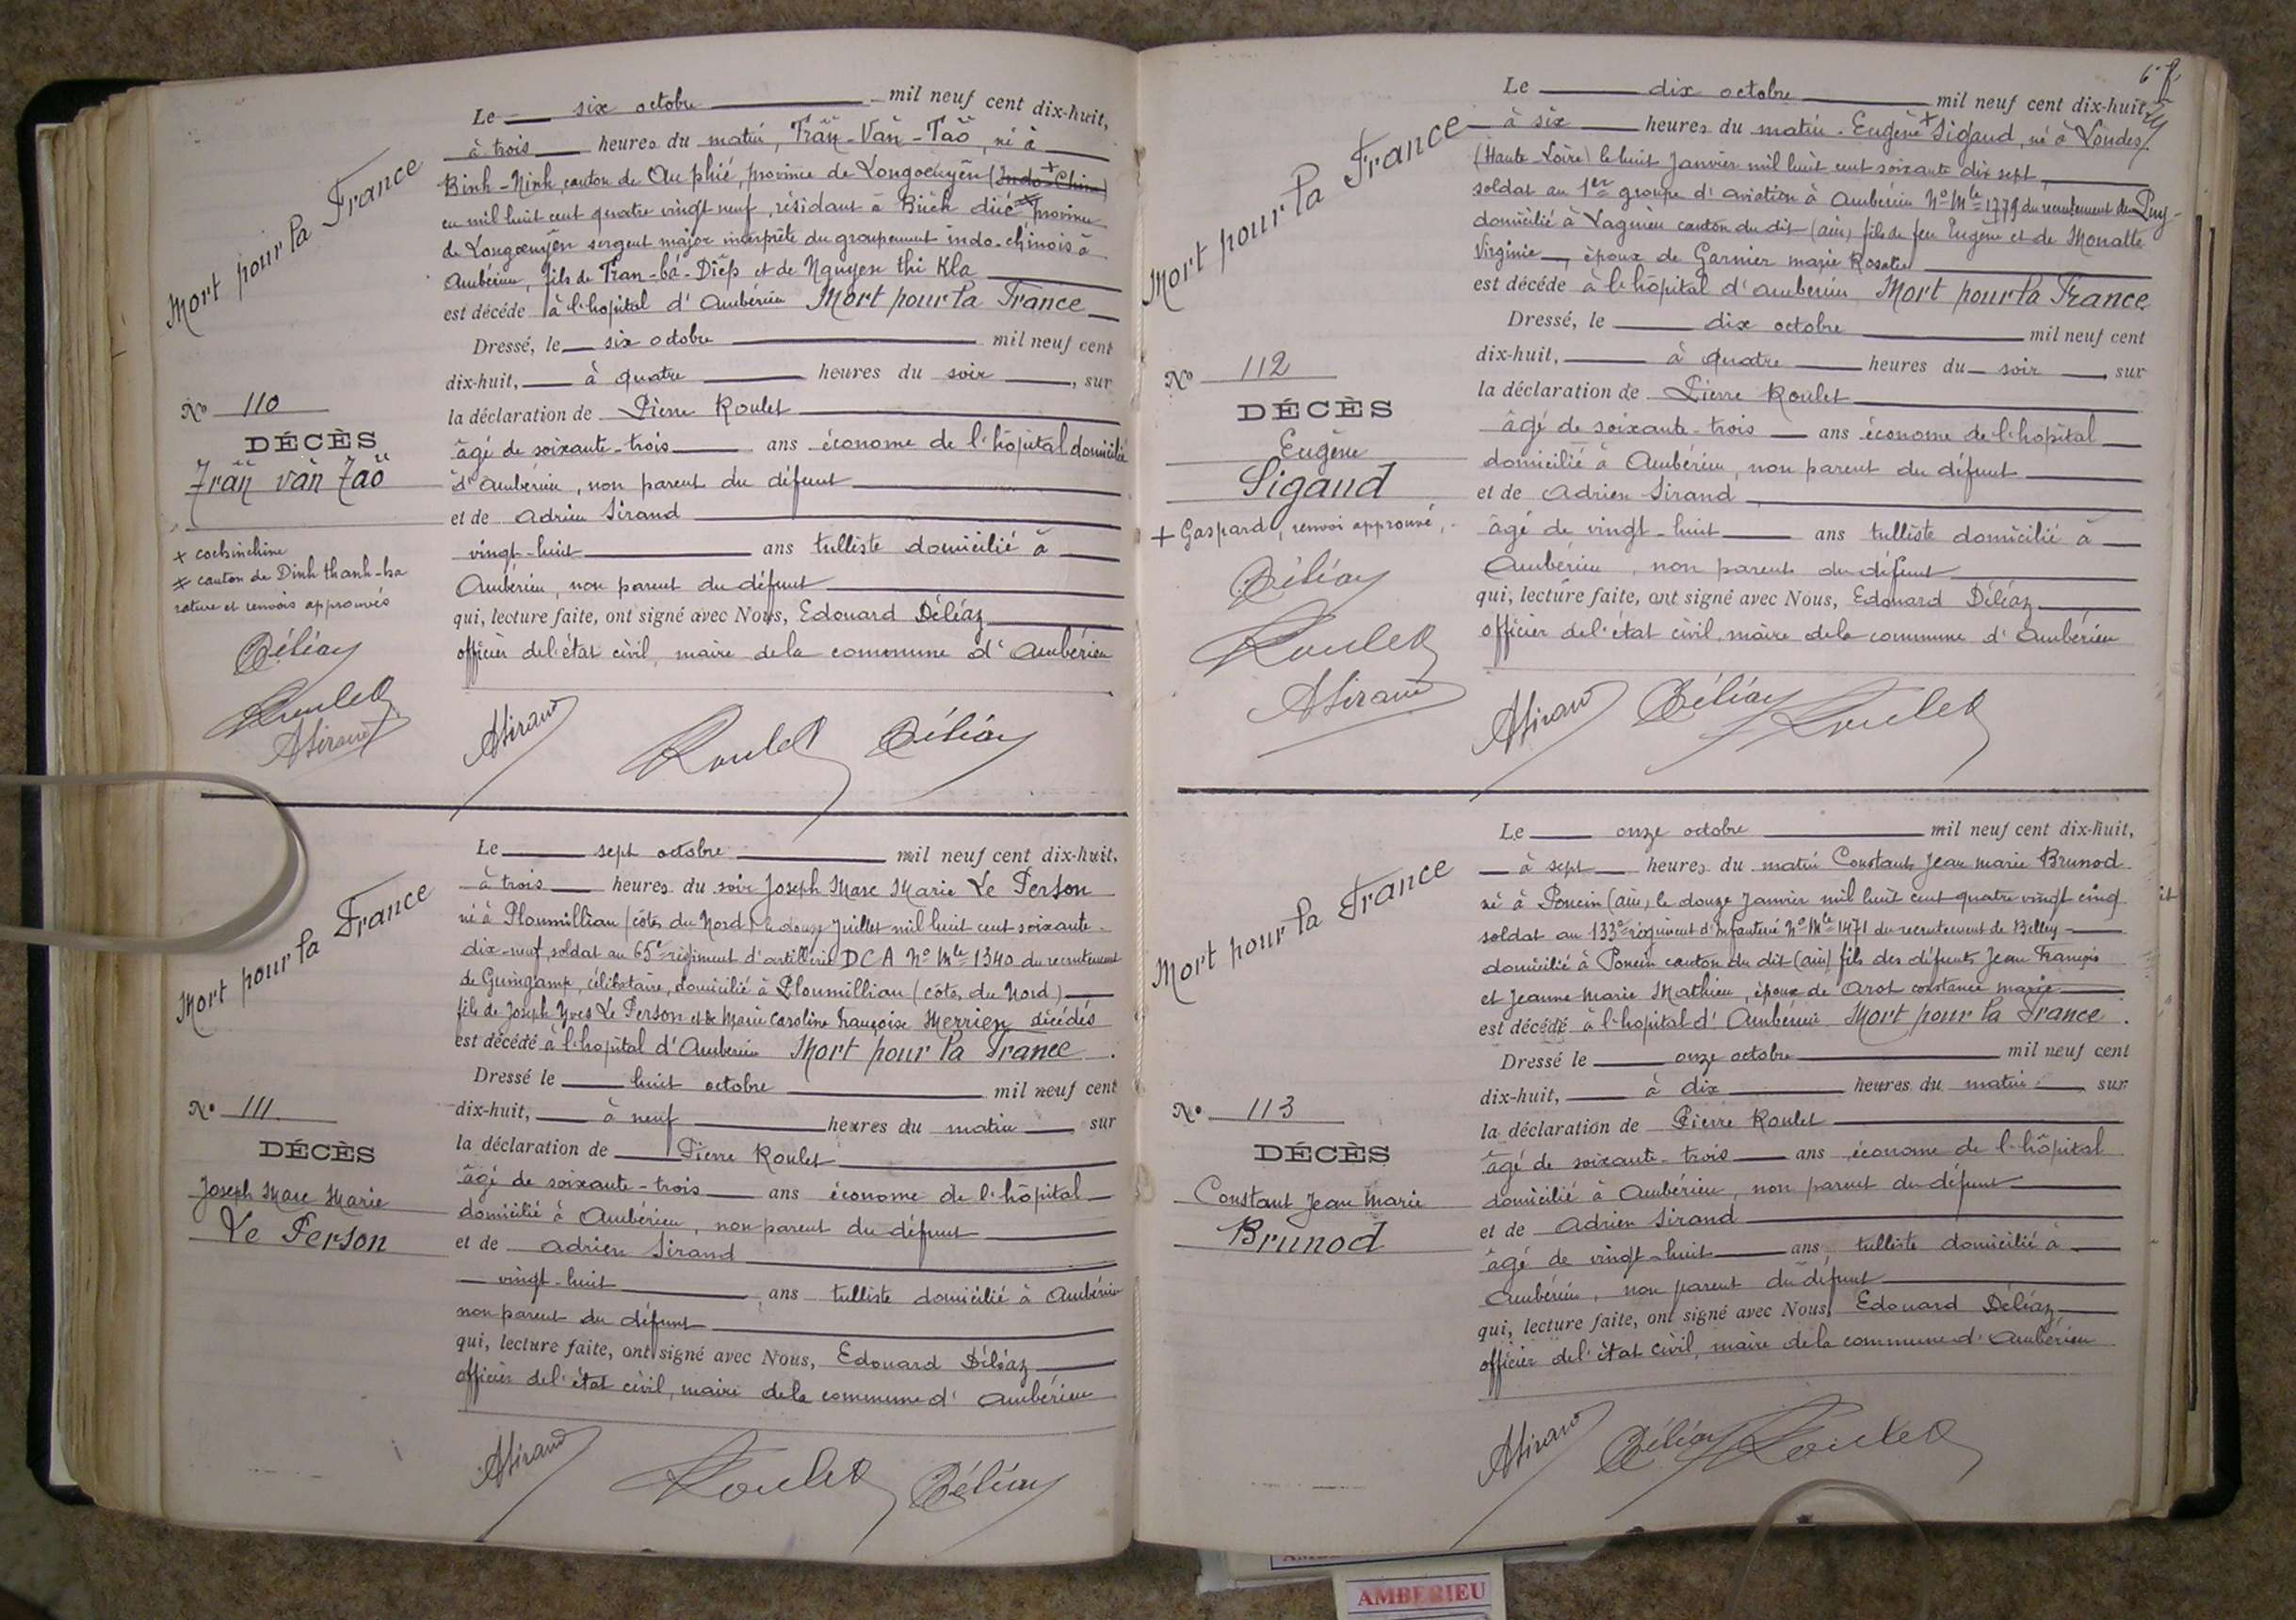 Mort pour la France
Le six octobre mil neuf cent dix-huit,
à trois heures du matin, Trăn-Văn-Taŏ, né à
Binh-Ninh, canton de An phié, province de Longoeuyên (Indo-Chine)
en mil huit cent quatre vingt neuf, résidant à Biěh diíc province
de Longoeuyên sergent major interprète du groupement indo-chinois à
Ambérieu, fils de Tran-bá-Diêp et de Nguyen thi Kla
est décédé à l'hopital d'Ambérieu Mort pour la France
Dressé, le six octobre mil neuf cent
dix-huit, à quatre heures du soir, sur
la déclaration de Pierre Roulet
âgé de soixante-trois ans économe de l'hôpital domicilié
d'Ambérieu, non parent du défunt
et de Adrien Sirand
vingt-huit ans tulliste domicilié à
Ambérieu, non parent du défunt
qui, lecture faite, ont signé avec Nous, Edouard Déléaz
officier de l'état civil, maire de la commune d'Ambérieu
ASirand Roulet Déléaz
No 110
DÉCÈS
Trăn văn Taŏ
+ cochinchine
≠ canton de Dinh thanh-ha
rature et renvois approuvés
Déléaz
Roulet
ASirand
Mort pour la France
Le sept octobre mil neuf cent dix-huit,
à trois heures du soir Joseph Marc Marie Le Person
né à Ploumilliau (côtes du Nord) le douze Juillet mil huit cent soixante-
dix-neuf, soldat au 65e régiment d'artillerie DCA No Mle 1340 du recrutement
de Guingamp, célibataire, domicilié à Ploumilliau (côtes du Nord)
fils de Joseph Yves Le Person et de Marie Caroline Françoise Merrien décédés
est décédé à l'hopital d'Ambérieu Mort pour la France.
Dressé le huit octobre mil neuf cent
dix-huit, à neuf heures du matin sur
la déclaration de Pierre Roulet
âgé de soixante-trois ans économe de l'hôpital
domicilié à Ambérieu, non parent du défunt
et de Adrien Sirand
vingt-huit ans tulliste domicilié à Ambérieu
non parent du défunt
qui, lecture faite, ont signé avec Nous, Edouard Déléaz
officier de l'état civil, maire de la commune d'Ambérieu
ASirand Roulet Déléaz
No 111
DÉCÈS
Joseph Marc Marie
Le Person
Mort pour la France
Le dix octobre mil neuf cent dix-huit,
à six heures du matin. Eugène + Sigaud, né à Loudes
(Haute-Loire) le huit Janvier mil huit cent soixante dix sept
soldat au 1er groupe d'aviation à Ambérieu No Mle 1779 du recrutement du Puy-
domicilié à Lagnieu canton du dit (ain) fils de feu Eugène et de Monatte
Virginie, époux de Garnier marie Rosalie
est décédé à l'hôpital d'ambérieu Mort pour la France
Dressé, le dix octobre mil neuf cent
dix-huit, à quatre heures du soir, sur
la déclaration de Pierre Roulet
âgé de soixante-trois ans économe de l'hopital
domicilié à Ambérieu, non parent du défunt
et de Adrien Sirand
âgé de vingt-huit ans tulliste domicilié à
Ambérieu, non parent du défunt
qui, lecture faite, ont signé avec Nous, Edouard Déléaz
officier de l'état civil, maire de la commune d'Ambérieu
ASirand Déléaz Roulet
No 112
DÉCÈS
Eugène
Sigaud
+ Gaspard, renvoi approuvé,
Déléaz
Roulet
ASirand
Mort pour la France
Le onze octobre mil neuf cent dix-huit,
à sept heures du matin Constant Jean marie Brunod
né à Poncin (ain) le douze Janvier mil huit cent quatre vingt cinq
soldat au 133e régiment d'infanterie No Mle 1471 du recrutement de Belley
domicilié à Poncin canton du dit (ain) fils des défunts Jean François
et Jeanne Marie Mathieu, époux de Arot constance marie
est décédé à l'hopital d'Ambérieu Mort pour la France.
Dressé le onze octobre mil neuf cent
dix-huit, à dix heures du matin sur
la déclaration de Pierre Roulet
âgé de soixante-trois ans économe de l'hôpital
domicilié à Ambérieu, non parent du défunt
et de Adrien Sirand
âgé de vingt-huit ans, tulliste domicilié à
Ambérieu, non parent du défunt
qui, lecture faite, ont signé avec Nous, Edouard Déléaz
officier de l'état civil, maire de la commune d'Ambérieu
ASirand Déléaz Roulet
No 113
DÉCÈS
Constant Jean Marie
Brunod
AMBERIEU